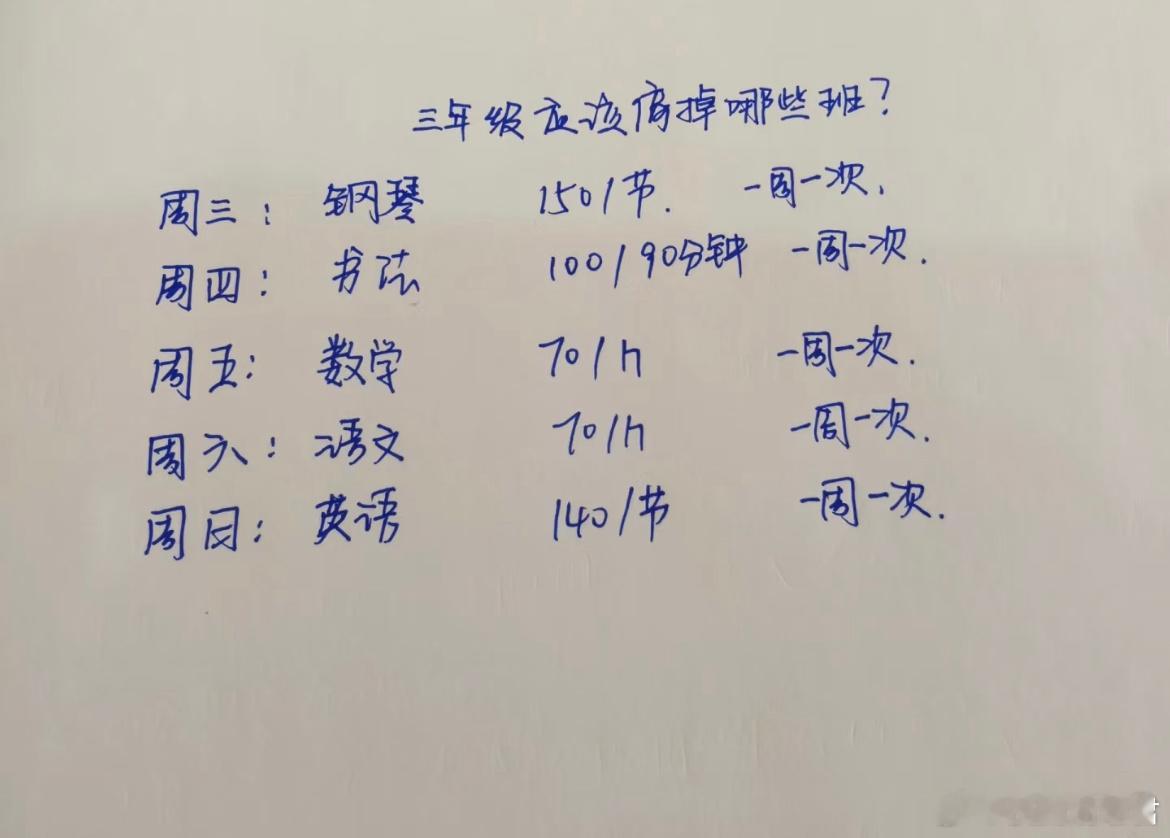 三年级应该停掉哪些班？
周三： 钢琴 150/节. 一周一次.
周四： 书法 100/90分钟 一周一次.
周五： 数学 70/h 一周一次.
周六： 语文 70/h 一周一次.
周日： 英语 140/节 一周一次.